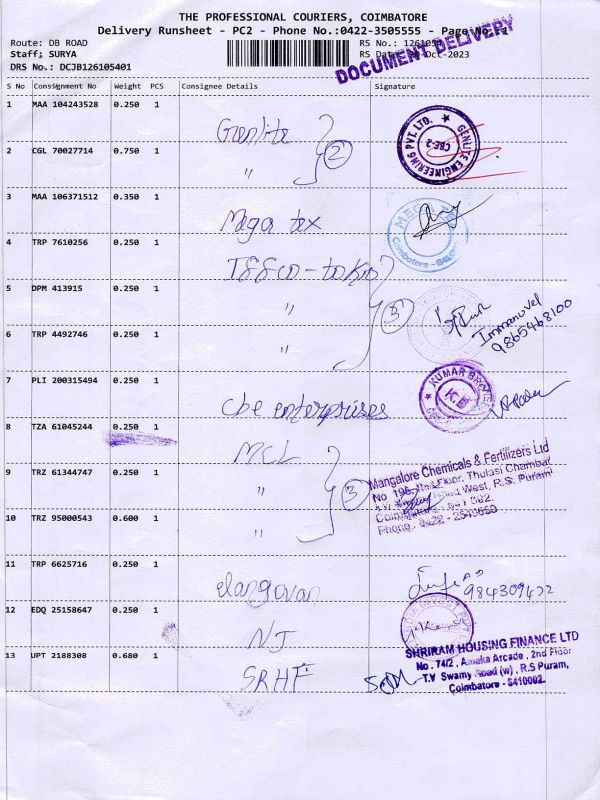 THE PROFESSIONAL COURIERS, COIMBATORE
Delivery Runsheet - PC2 - Phone No.:0422-3505555 - Page No. 1
Route: DB ROAD
Staff: SURYA
DRS No.: DCJB126105401
RS No.: 126105
RS Date: Oct-2023
DOCUMENT DELIVERY
S No Consignment No Weight PCS Consignee Details Signature
1 MAA 104243528 0.250 1
Genlite
2 CGL 70027714 0.750 1 " 2
GENLITE ENGINEERING PVT. LTD.
CBE-2
3 MAA 106371512 0.350 1
Mega tex
MEGA
Coimbatore -
4 TRP 7610256 0.250 1
5 DPM 413915 0.250 1
" 3
Immanuvel
9865468100
6 TRP 4492746 0.250 1
"
7 PLI 200315494 0.250 1
Cbe enterprises
KUMAR
K.B
8 TZA 61045244 0.250 1
MCL
Mangalore Chemicals & Fertilizers Ltd
No 196, Floor, Thulasi Chambar
West, R.S. Puram
9 TRZ 61344747 0.250 1
" 3
Phone: 0422 -
10 TRZ 95000543 0.600 1
"
11 TRP 6625716 0.250 1
elangovan
12 EDQ 25158647 0.250 1
NJ
13 UPT 2188308 0.680 1
SRHF
SHRIRAM HOUSING FINANCE LTD
No. 74/2, Ameka Arcade, 2nd Floor
T.V Swamy Road (w), R.S Puram,
Coimbatore - 641002.